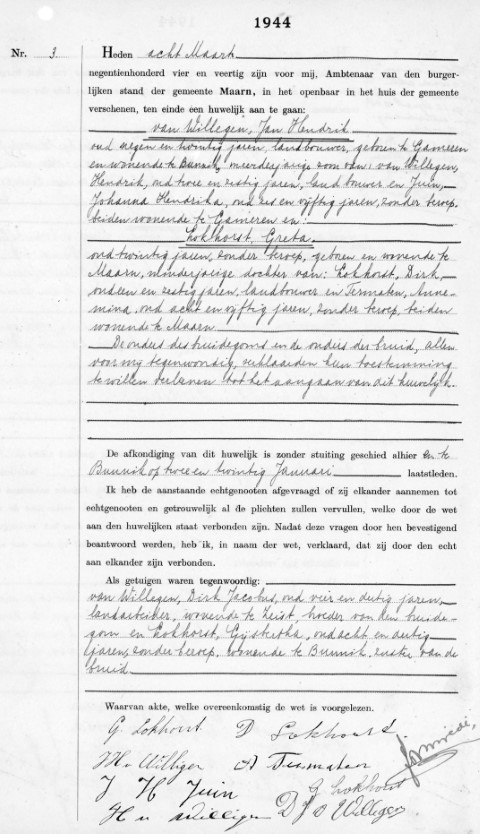 1944
Nr. 3. Heden acht Maart
negentienhonderd vier en veertig zijn voor mij, Ambtenaar van den burger-
lijken stand der gemeente Maarn, in het openbaar in het huis der gemeente
verschenen, ten einde een huwelijk aan te gaan:
van Willegen, Jan Hendrik
oud negen en twintig jaren, landbouwer, geboren te Gameren
en wonende te Bunnik, meerderjarige zoon van: van Willegen,
Hendrik, oud twee en zestig jaren, landbouwer en Juin,
Johanna Hendrika, oud zes en vijftig jaren, zonder beroep,
beiden wonende te Gameren en:
Lokhorst, Greta.
oud twintig jaren, zonder beroep, geboren en wonende te
Maarn, minderjarige dochter van: Lokhorst, Dirk,
oud een en zestig jaren, landbouwer en Termaten, Anne-
mina, oud acht en vijftig jaren, zonder beroep, beiden
wonende te Maarn
De ouders des bruidegoms en de ouders der bruid, allen
voor mij tegenwoordig, verklaarden hun toestemming
te willen verleenen tot het aangaan van dit huwelijk.
De afkondiging van dit huwelijk is zonder stuiting geschied alhier en te
Bunnik op twee en twintig Januari laatstleden.
Ik heb de aanstaande echtgenooten afgevraagd of zij elkander aannemen tot
echtgenooten en getrouwelijk al de plichten zullen vervullen, welke door de wet
aan den huwelijken staat verbonden zijn. Nadat deze vragen door hen bevestigend
beantwoord werden, heb ik, in naam der wet, verklaard, dat zij door den echt
aan elkander zijn verbonden.
Als getuigen waren tegenwoordig:
van Willegen, Dirk Jacobus, oud vier en dertig jaren,
landarbeider, wonende te Zeist, broeder van den bruide-
gom en Lokhorst, Gijsbertha, oud acht en dertig
jaren, zonder beroep, wonende te Bunnik, zuster van de
bruid
Waarvan akte, welke overeenkomstig de wet is voorgelezen.
G Lokhorst D Lokhorst
A Termaten
J H Juin G Lokhorst
H v Willigen D J v Willegen